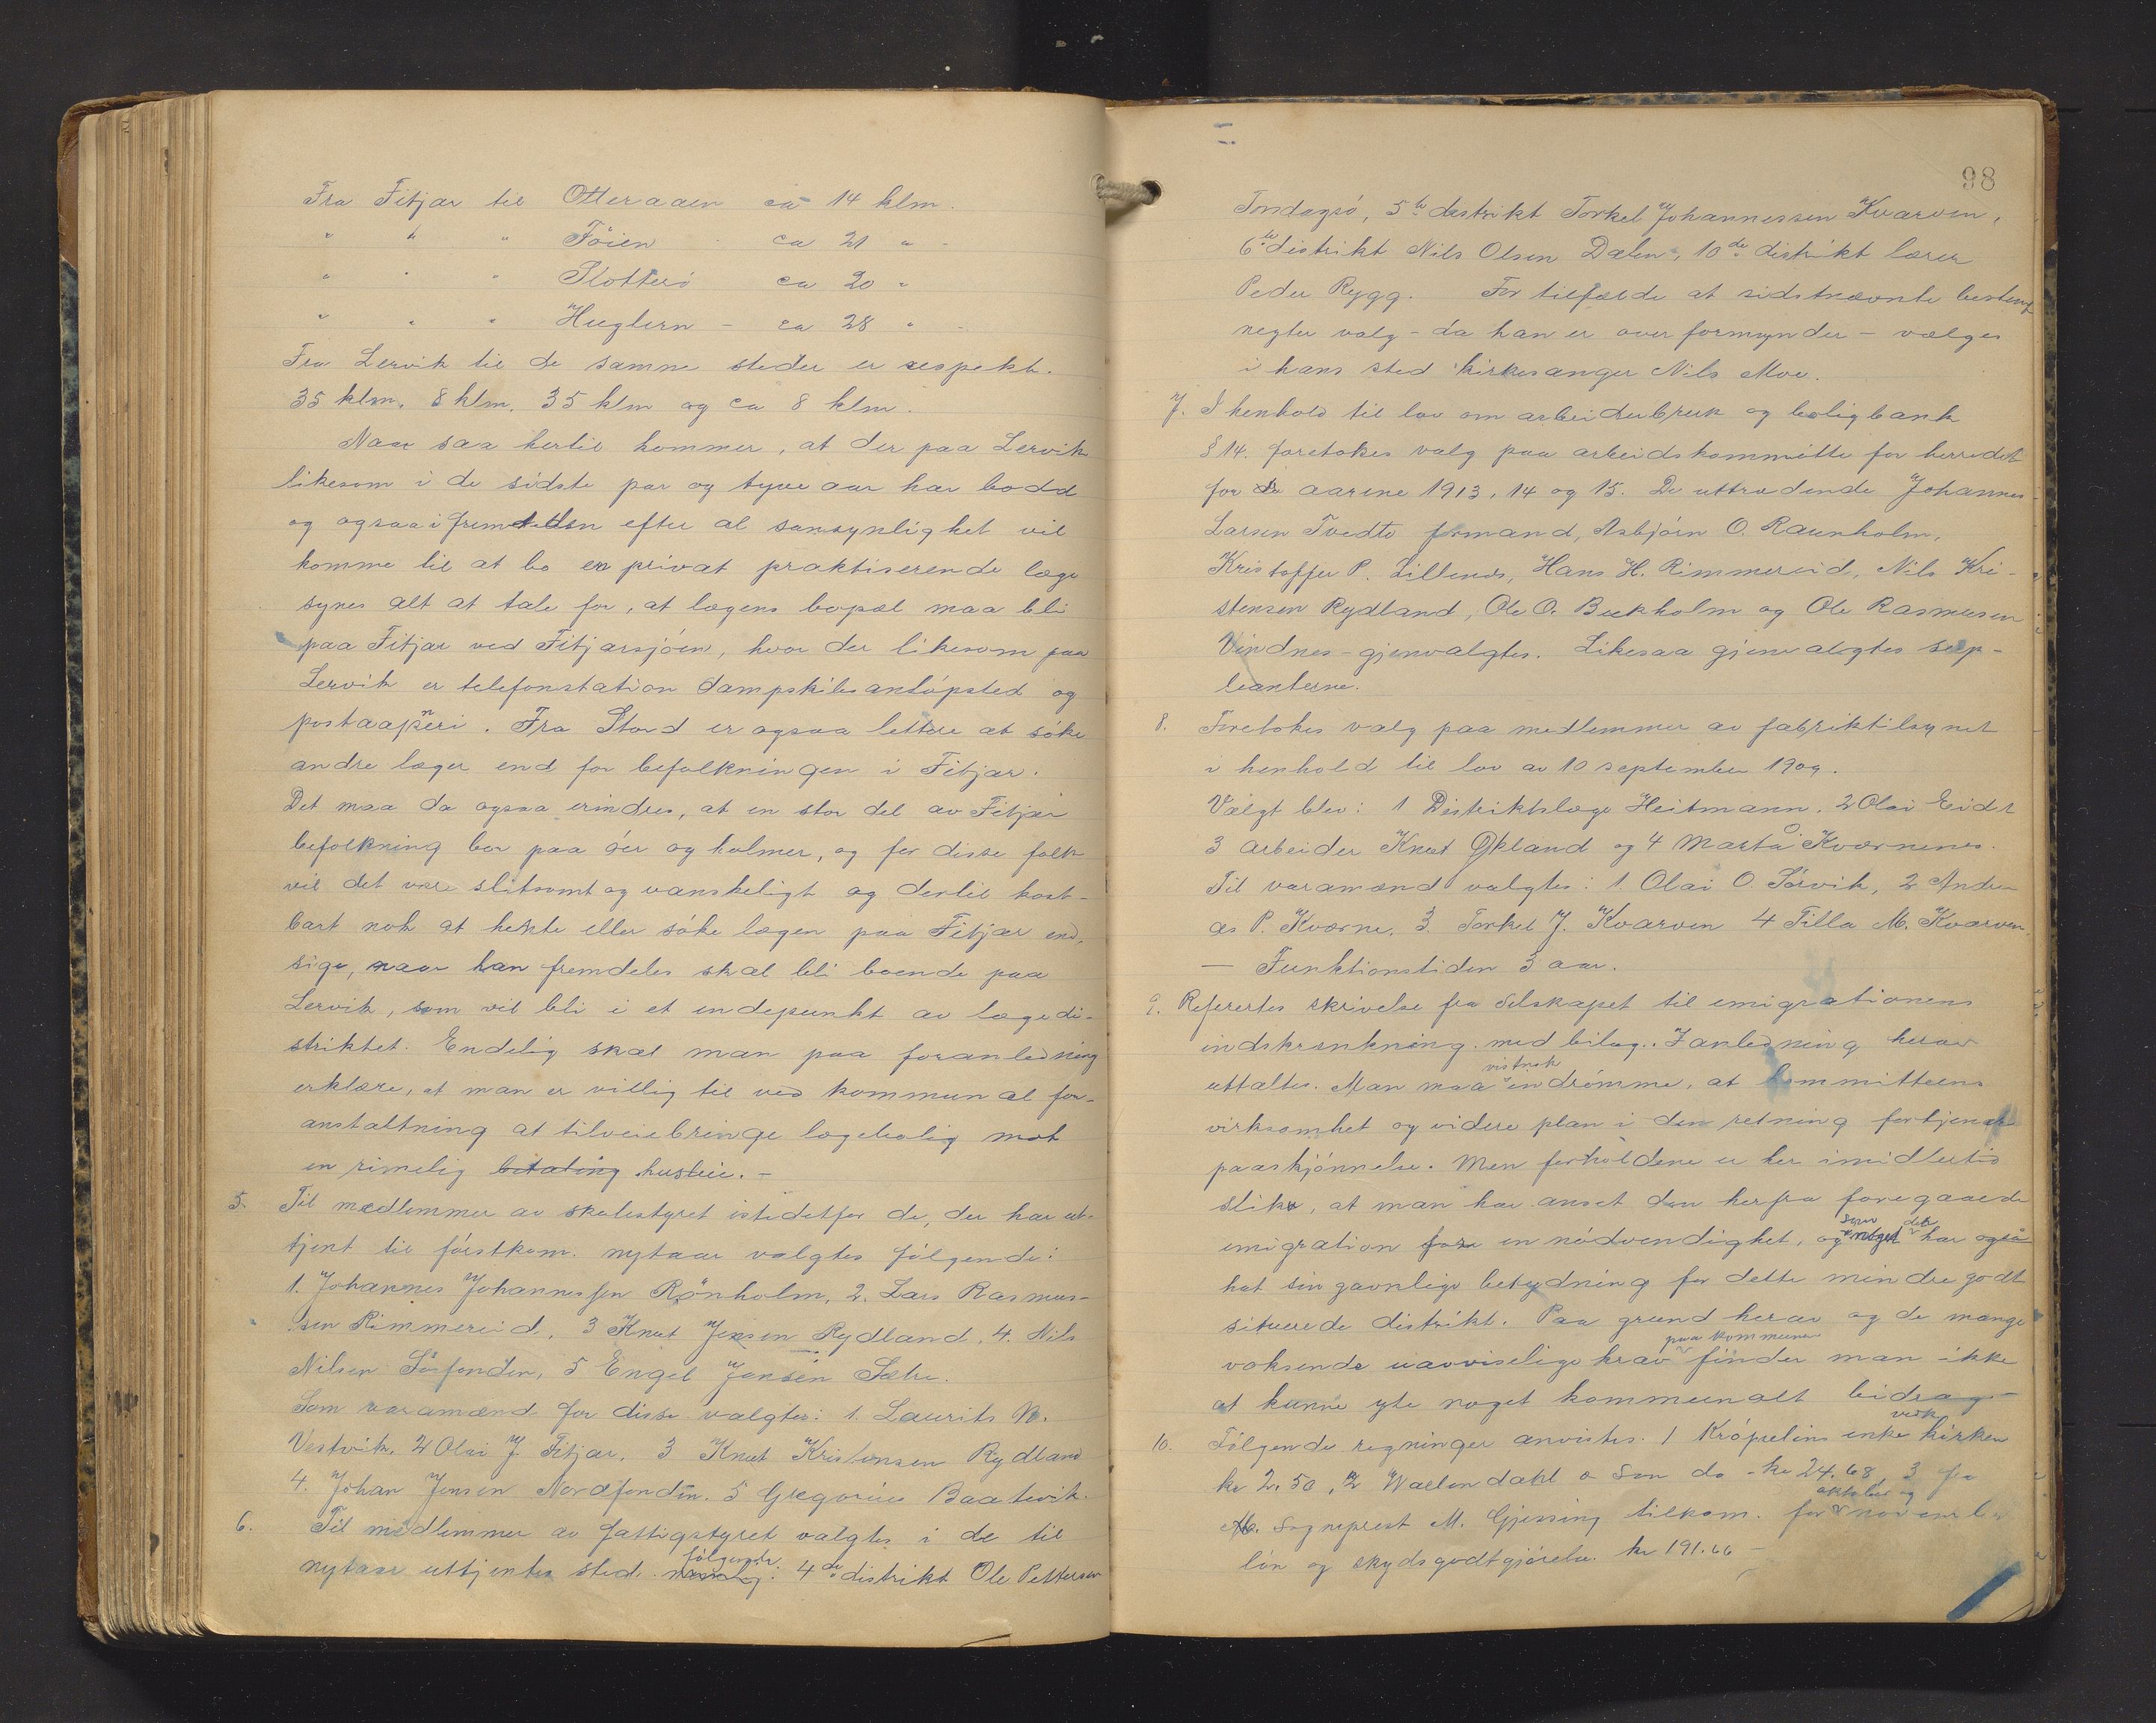 Fra Fitjar til Otteraaen ca 14 klm.
" " " Föien ca 21 " -
" " " Slotterö ca 20 "
" " " Huglern - ca 28 " -
Fra Lervik til de samme steder er respekt.
35 klm, 8 klm, 35 klm og ca 8 klm.
Naar saa hertil kommer, at der paa Lervik
likesom i de sidste par og tyve aar har bodd
og ogsaa i fremtiden efter al sansynlighet vil
komme til at bo en privat praktiserende læge
synes alt at tale for, at lægens bopæl maa bli
paa Fitjar ved Fitjarsjöen, hvor der likesom paa
Lervik er telefonstation dampskibsanlöpsted og
postaapneri. Fra Stord er ogsaa lettere at söke
andre læger end for befolkningen i Fitjar.
Det maa da ogsaa erindres, at en stor del av Fitjar
befolkning bor paa öer og holmer, og for disse folk
vil det være slitsomt og vanskeligt og dertil kost-
bart nok at hente eller söke lægen paa Fitjar end-
sige, naar han fremdeles skal bli boende paa
Lervik, som vil bli i et endepunkt av lægedi-
striktet. Endelig skal man paa foranledning
erklære, at man er villig til ved kommunal for-
anstaltning at tilveiebringe lægebolig mot
en rimelig betaling husleie. -
5. Til medlemmer av skolestyret istedetfor de, der har ut-
tjent til förstkom. nytaar valgtes fölgende:
1. Johannes Johannessen Rönholm, 2. Lars Rasmus-
sen Rimmereid, 3 Knut Jensen Rydland, 4. Nils
Nilsen Sörfonden, 5 Engel Jansen Sætre.
Som varamænd for disse valgtes: 1. Laurits N.
Vestvik, 2 Olai J. Fitjar, 3 Knut Kristensen Rydland
4. Johan Jensen Nordfonden. 5 Gregorius Baatevik.
6. Til medlemmer av fattigstyret valgtes i de til
nytaar uttjentes sted fölgende: 4de distrikt Ole Pettersen
98
Tondagsö, 5te distrikt Torkel Johannessen Kvarven,
6te distrikt Nils Olsen Dalen, 10de distrikt lærer
Peder Rygg. For tilfælde at sidstnævnte bestemt
negter valg - da han er overformynder - vælges
i hans sted kirkesanger Nils Moe.
7. I henhold til lov om arbeiderbruk og boligbank
§ 14. foretokes valg paa arbeidskommitte for herredet
for aarene 1913, 14 og 15. De uttrædende Johannes
Larsen Tvedte formand, Asbjörn O. Raunholm,
Kristoffer P. Lillenes, Hans H. Rimmereid, Nils Kri-
stensen Rydland, Ole O. Bukholm og Ole Rasmusen
Vindnes - gjenvalgtes. Likesaa gjenvalgtes sup-
leanterne.
8. Foretokes valg paa medlemmer av fabriktilsynet
i henhold til lov av 10 september 1909.
Valgt blev: 1 Distriktslæge Heitmann. 2 Olai Eide
3 arbeider Knut Økland og 4 Marta O. Kværnenes.
Til varamænd valgtes: 1. Olai O. Sörvik, 2 Andre-
as P. Kværne, 3. Torkel J. Kvarven 4 Tilla M. Kvarven
- Funktionstiden 3 aar.
9. Refertes skrivelse fra Selskapet til emigrationens
indskrænkning med bilag. I anledning herav
uttaltes. Man maa vistnok indrömme, at kommitteens
virksomhet og videre plan i den retning fortjener
paaskjönnelse. Men forholdene er her imidlertid
slike, at man har anset den herfra foregaaende
emigration for en nödvendighet, og som det har ogsaa
hat sin gavnlige betydning for dette mindre godt
situerede distrikt. Paa grund herav og de mange
voksende uavviselige krav paa kommunen finder man ikke
at kunne yte noget kommunalt bidrag -
10. Fölgende regninger anvistes. 1 Kröpelins enke vedk kirken
kr 2.50, 2 Wallendahl & Søn do - kr 24.68 3 fra
sogneprest M. Gjessing tilkom. for oktober og november
lön og skydsgodtgjörelse. kr 191.66 -